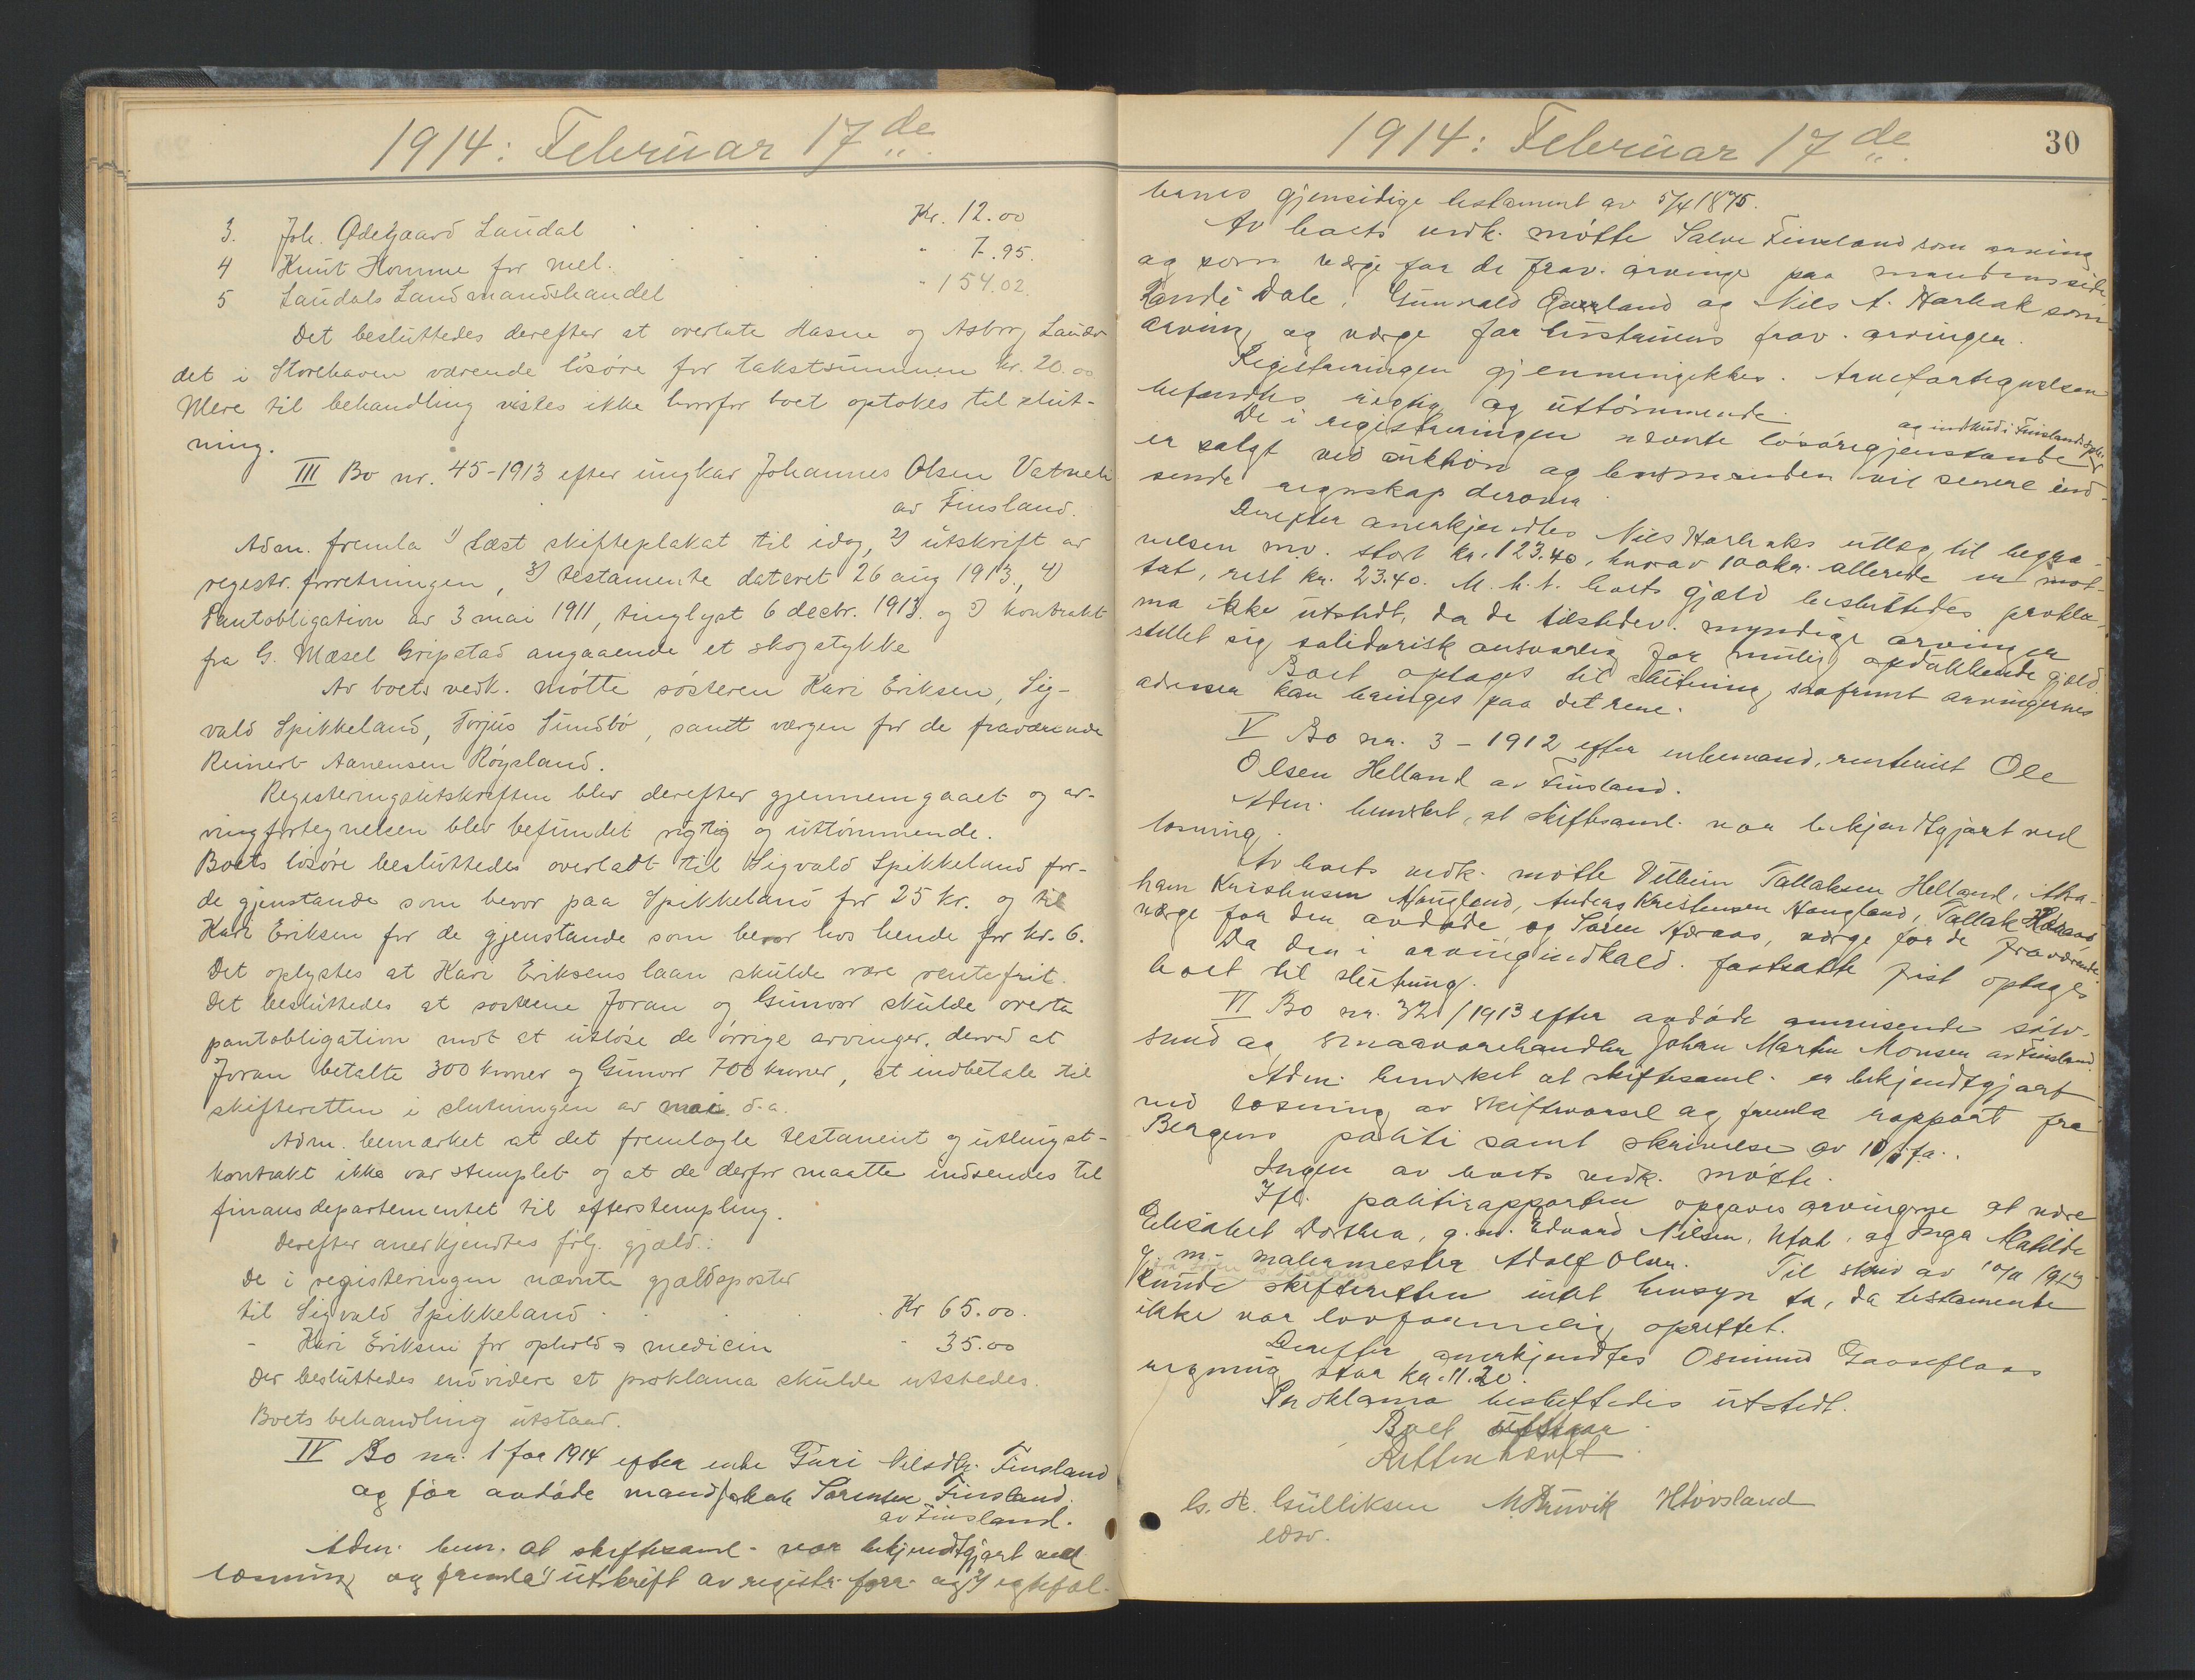 1914: Februar 17de
3. Joh. Ødegaard Laudal Kr. 12.00
4 Knut Homme for mel. " 7.95.
5 Laudals Landmandshandel " 154.02.
Det besluttedes derefter at overlate Hasne og Asbrg Laudal
det i Storehaven værende løsøre for takstsummen kr. 20.00
Mere til behandling vistes ikke hvorfor boet optokes til slut-
ning.
III Bo nr. 45-1913 efter ungkar Johannes Olsen Vatneli
av Finsland.
Adm. fremla 1) læst skifteplakat til idag, 2) utskrift av
registr. forretningen, 3) testamente dateret 26 aug 1913., 4)
Pantobligation av 3 mai 1911, tinglyst 6 decbr. 1913. og 5) kontrakt
fra G. Mæsel Gripstad angaaende et skogstykke
Av boets vedk. møtte søsteren Kari Eriksen, Sig-
vald Spikkeland, Torjus Sundbø, samt værgen for de fraværende
Reinert Aanensen Røysland.
Registeringsutskriften blev derefter gjennemgaaet og ar-
vingfortegnelsen blev befundet rigtig og uttømmende.
Boets løsøre besluttedes overladt til Sigvald Spikkeland for-
de gjenstande som beror paa Spikkeland for 25 kr. og til
Kari Eriksen for de gjenstande som beror hos hende for kr. 6.
Det oplystes at Kari Eriksens laan skulde være rentefrit.
Det besluttedes at søstrene Joran og Gunvor skulde overta
pantobligation mot at utløse de øvrige arvinger, derved at
Joran betalte 300 kroner og Gunvor 700 kroner, at indbetale til
skifteretten i slutningen av mai d.a.
Adm. bemærket at det fremlagte testament og utlugst-
kontrakt ikke var stemplet og at de derfor maatte indsendes til
finansdepartementet til efterstempling.
Derefter anerkjendtes følg. gjæld:
De i registeringen nævnte gjældsposter
til Sigvald Spikkeland Kr 65.00.
- Kari Eriksen for ophold & medicin - 35.00
Der besluttedes endvidere at proklama skulde utstedes.
Boets behandling utstaar.
IV Bo nr. 1 for 1914 efter enke Guri Nilsdtr. Finsland
og før avdøde mand Jakob Sørensen Finsland
av Finsland.
Adm. bem. at skiftesaml. var bekjendtgjort ved
læsning og fremla 1) utskrift av registr. forr. og 2) egtefol-
1914: Februar 17de
30
kenes gjensidige testament av 5/4 1875.
Av boets vedk. møtte Salve Finsland som arving
og som værge for de frav. arvinge paa mandens side,
Dale, Gunvald og Nils A. Harbak som
arving og værge for hustruens frav. arvinger.
Registreringen gjennemgikkes. Arvefortegnelsen
befandtes rigtig og uttømmende.
og indbud i Finslands spb.
De i registreringen nævnte løsøregjenstande er
er solgt ved auktion og lensmanden vil senere ind-
sende regnskap derover.
Derefter anerkjendtes Nils Harbaks utlæg til begra-
velsen mv. stort kr. 123.40, hvorav 100 kr. allerede er mot-
tat, rest kr. 23.40. M.h.t. boets gjæld besluttedes prokla-
ma ikke utstedt, da de tilstedev. myndige arvinger
stillet sig solidarisk ansvarlig for mulig opdukkende gjæld.
Boet optages til slutning, saafremt arvingernes
adresser kan bringes paa det rene.
V Bo nr. 3 - 1912 efter enkemand, rentenist Ole
Olsen Helland av Finsland.
Adm. bemærket, at skiftesaml. var bekjendtgjort ved
læsning.
Av boets vedk. møtte Vilhelm Tallaksen Helland, Abra-
ham Kristensen Haugland, Anders Kristensen Haugland, Tallak
værge for den avdøde og Søren Aeraas, værge for de fraværende
Da den i arvingindkald. fastsatte frist optages
boet til slutning.
VI Bo nr. 32/1913 efter avdøde omreisende sølv-
smed og smaavarehandler Johan Martin Monsen av Finsland.
Adm. bemærket at skiftesaml. er bekjendtgjort
ved læsning av skiftevarsel og fremla rapport fra
Bergens politi samt skrivelse av
Ingen av boets vedk. møtte.
Iflg. politirapporten opgaves arvingerne at være
Elisabet Dorthea, g. m. Edvard Nilsen, Utah, og Inga Matilde
g. m. malermester Adolf Olsen. Til skriv av 1913
kunde skifteretten intet hensyn ta, da testamente
ikke var lovformelig oprettet.
Derefter anerkjendtes Osmund Gaaseflaas
regning stor kr. 11.20.
Proklama besluttedes utstedt.
Boet utstaar
Retten hævet.
G. H. Gulliksen M. Hovsland
edsv.